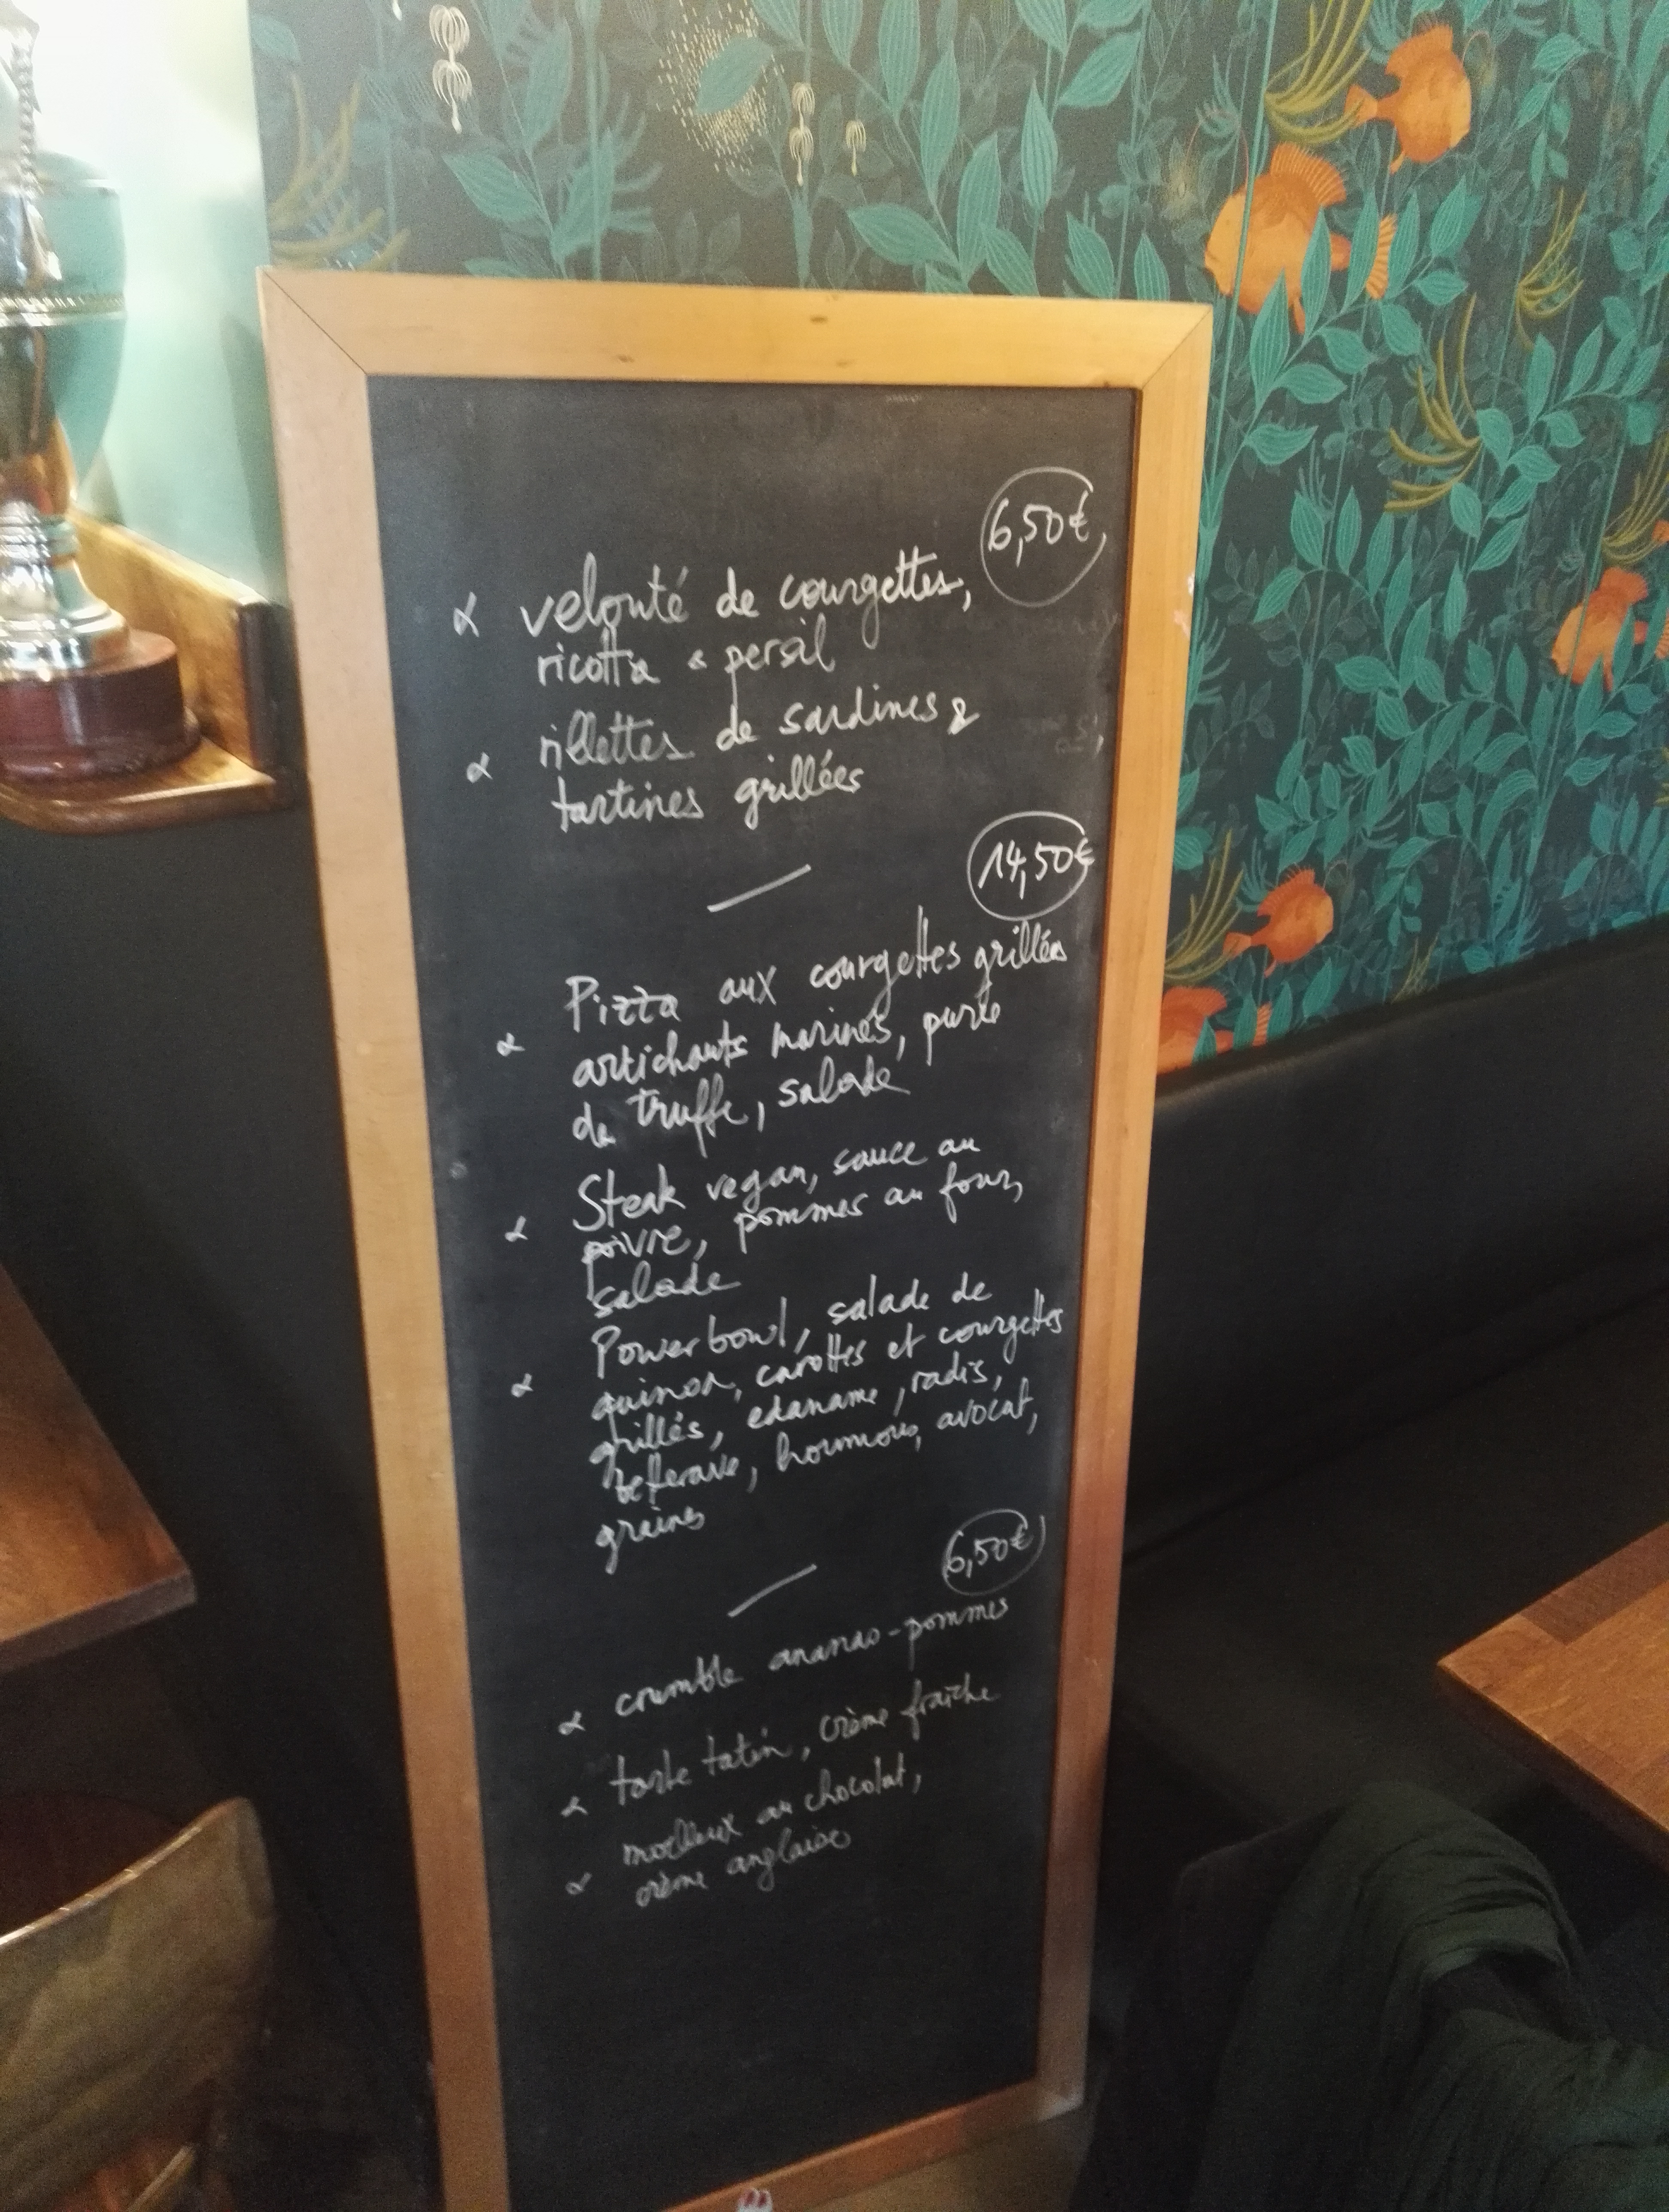 6,50€
velouté de courgettes,
ricotta & persil
rillettes de sardines &
tartines grillées
14,50€
Pizza aux courgettes grillées
artichauts marinés, purée
de truffe, salade
Steak vegan, sauce au
poivre, pommes au four,
salade
Powerbowl, salade de
quinoa, carottes et courgettes
grillés, edaname, radis,
betterave, houmous, avocat,
graines
6,50€
crumble ananas-pommes
tarte tatin, crème fraîche
moelleux au chocolat,
crème anglaise